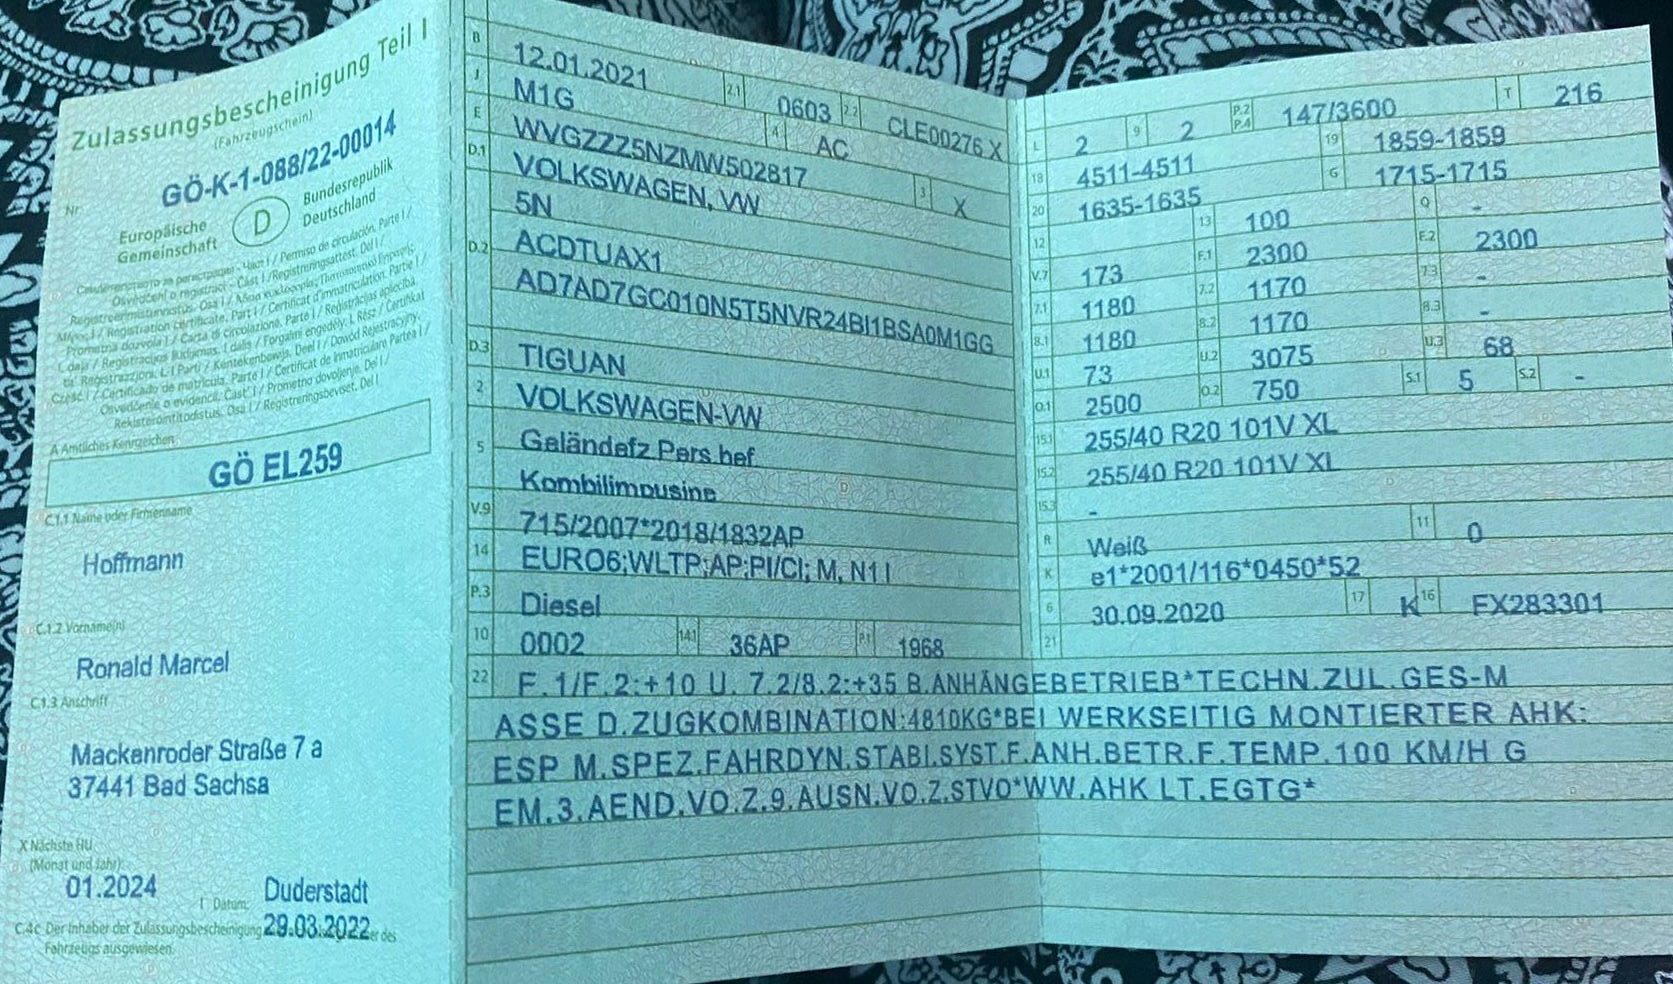 Zulassungsbescheinigung Teil I
(Fahrzeugschein)
Nr. GÖ-K-1-088/22-00014
Europäische Gemeinschaft D Bundesrepublik Deutschland
Prometna dozvola I / Carta di circolazione. Parte I /
A Amtliches Kennzeichen
GÖ EL259
C.1.1 Name oder Firmenname
Hoffmann
C.1.2 Vorname(n)
Ronald Marcel
C.1.3 Anschrift
Mackenroder Straße 7 a
37441 Bad Sachsa
X Nächste HU
(Monat und Jahr):
01.2024
Duderstadt
I Datum:
29.03.2022
C.4c Der Inhaber der Zulassungsbescheinigung
Fahrzeugs ausgewiesen.
B 12.01.2021 2.1 0603 2.2 CLE00276 X
J M1G 4 AC
E WVGZZZ5NZMW502817 3 X
D.1 VOLKSWAGEN, VW
5N
D.2 ACDTUAX1
AD7AD7GC010N5T5NVR24BI1BSA0M1GG
D.3 TIGUAN
2 VOLKSWAGEN-VW
5 Geländefz Pers.bef.
Kombilimousine
V.9 715/2007*2018/1832AP
14 EURO6;WLTP;AP;PI/CI; M, N1 I
P.3 Diesel
10 0002 14.1 36AP P.1 1968
L 2 9 2 P.2 P.4 147/3600 T 216
18 4511-4511 19 1859-1859
20 1635-1635 G 1715-1715
12 13 100 Q -
V.7 173 F.1 2300 F.2 2300
7.1 1180 7.2 1170 7.3 -
8.1 1180 8.2 1170 8.3 -
U.1 73 U.2 3075 U.3 68
O.1 2500 O.2 750 S.1 5 S.2 -
15.1 255/40 R20 101V XL
15.2 255/40 R20 101V XL
15.3 -
R Weiß 11 0
K e1*2001/116*0450*52
6 30.09.2020 17 K 16 FX283301
21
22 F.1/F.2:+10 U. 7.2/8.2:+35 B.ANHÄNGEBETRIEB*TECHN.ZUL.GES-M
ASSE D.ZUGKOMBINATION:4810KG*BEI WERKSEITIG MONTIERTER AHK:
ESP M.SPEZ.FAHRDYN.STABI.SYST.F.ANH.BETR.F.TEMP.100 KM/H G
EM.3.AEND.VO.Z.9.AUSN.VO.Z.STVO*WW.AHK LT.EGTG*